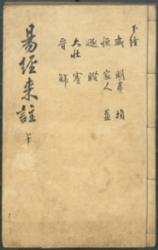 下經
咸 明夷 損
恒 家人 益
遯 睽
大壯 蹇
晉 解
易經來註